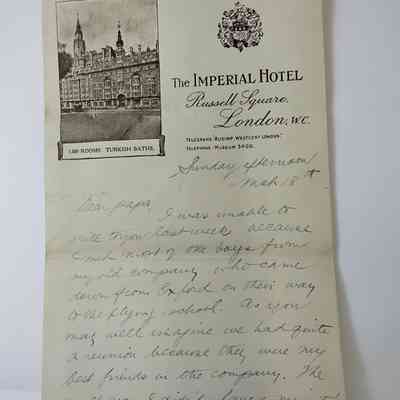 The IMPERIAL HOTEL
Russell Square,
London, W.C.
TELEGRAMS "RUSIMP WESTCENT LONDON."
TELEPHONE "MUSEUM 3400.
ROOMS TURKISH BATHS.
Sunday afternoon
March 18th
Dear papa,
I was unable to
write to you last week because
I met most of the boys from
my old company who came
down from Oxford on their way
to the flying school. As you
may well imagine we had quite
a reunion because they were my
best friends in the company. The
I didn't